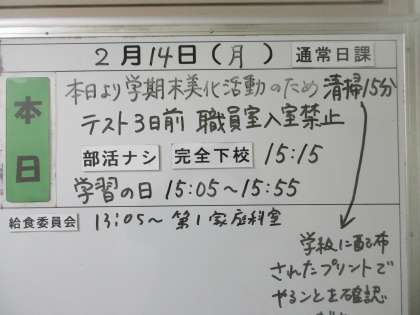 2月14日(月) 通常日課
本日
本日より学期末美化活動のため 清掃15分
テスト3日前 職員室入室禁止
部活ナシ 完全下校 15:15
学習の日 15:05~15:55
給食委員会 13:05~ 第1家庭科室
学級に配布
されたプリントで
やることを確認